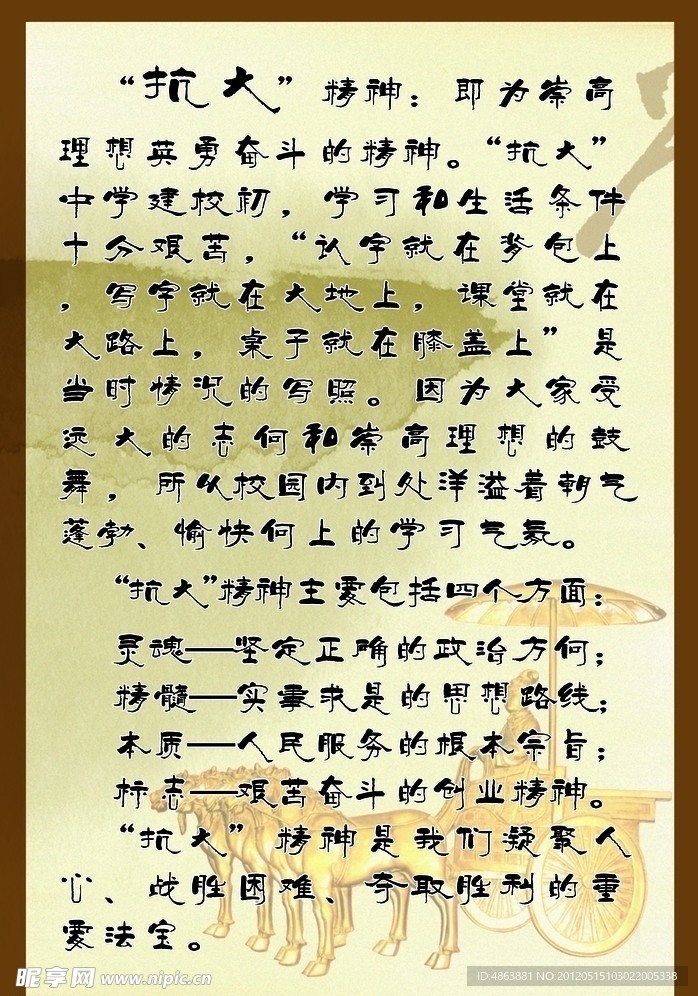 “抗大”精神：即为崇高
理想英勇奋斗的精神。“抗大”
中学建校初，学习和生活条件
十分艰苦，“认字就在背包上
，写字就在大地上，课堂就在
大路上，桌子就在膝盖上”是
当时情况的写照。因为大家受
远大的志何和崇高理想的鼓
舞，所从校园内到处洋溢着朝气
蓬勃、愉快何上的学习气氛。
“抗大”精神主要包括四个方面：
灵魂——坚定正确的政治方何；
精髓——实事求是的思想路线；
本质——人民服务的根本宗旨；
标志——艰苦奋斗的创业精神。
“抗大”精神是我们凝聚人
心、战胜困难、夺取胜利的重
要法宝。
昵享网 www.nipic.cn
ID:4863881 NO:20120515103022005338